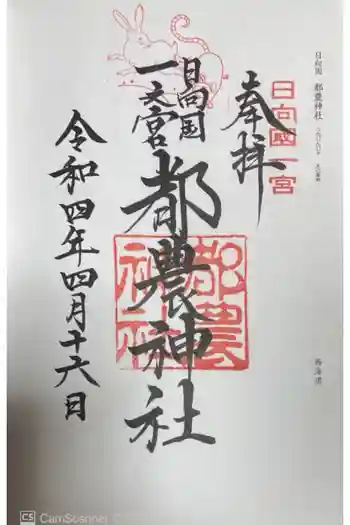 日向国 都農神社
日向國一宮
奉拝
日向国
一之宮
都農神社
都農
神社
令和四年四月十六日
西海道
CS CamScanner